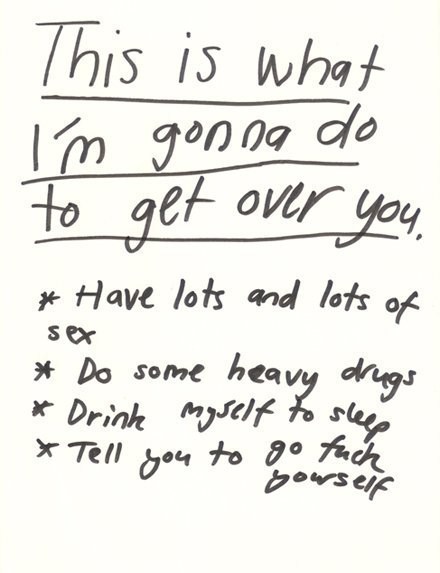 This is what
I'm gonna do
to get over you.
* Have lots and lots of
sex
* Do some heavy drugs
* Drink myself to sleep
* Tell you to go fuck
yourself